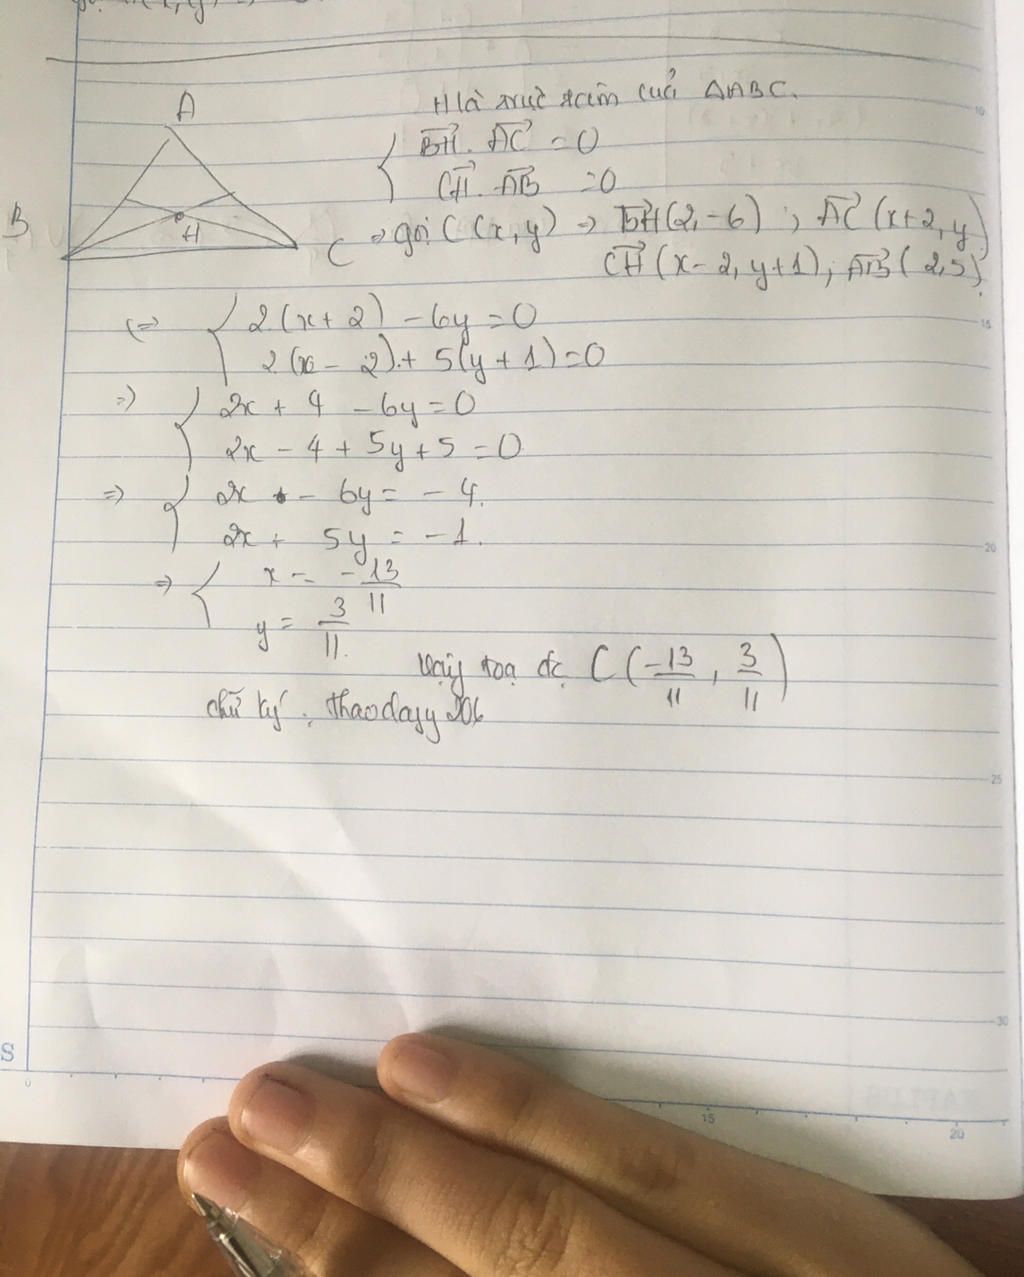 A
H là trực tâm của ΔABC.
BH→ . AC→ = 0
CH→ . AB→ = 0
B
H
C
⇒ gọi C(x,y) ⇒ BH→(2,-6) ; AC→(x+2,y)
CH→(x-2,y+1), AB→(2,5).
⇔ { 2(x+2) - 6y = 0
2(x-2) + 5(y+1) = 0
⇒ { 2x + 4 - 6y = 0
2x - 4 + 5y + 5 = 0
⇒ { 2x - 6y = -4.
2x + 5y = -1.
⇒ { x = -13/11
y = 3/11.
Vậy toạ độ C(-13/11, 3/11)
chữ ký : thaodayy206
S
0
15
20
10
15
20
25
30